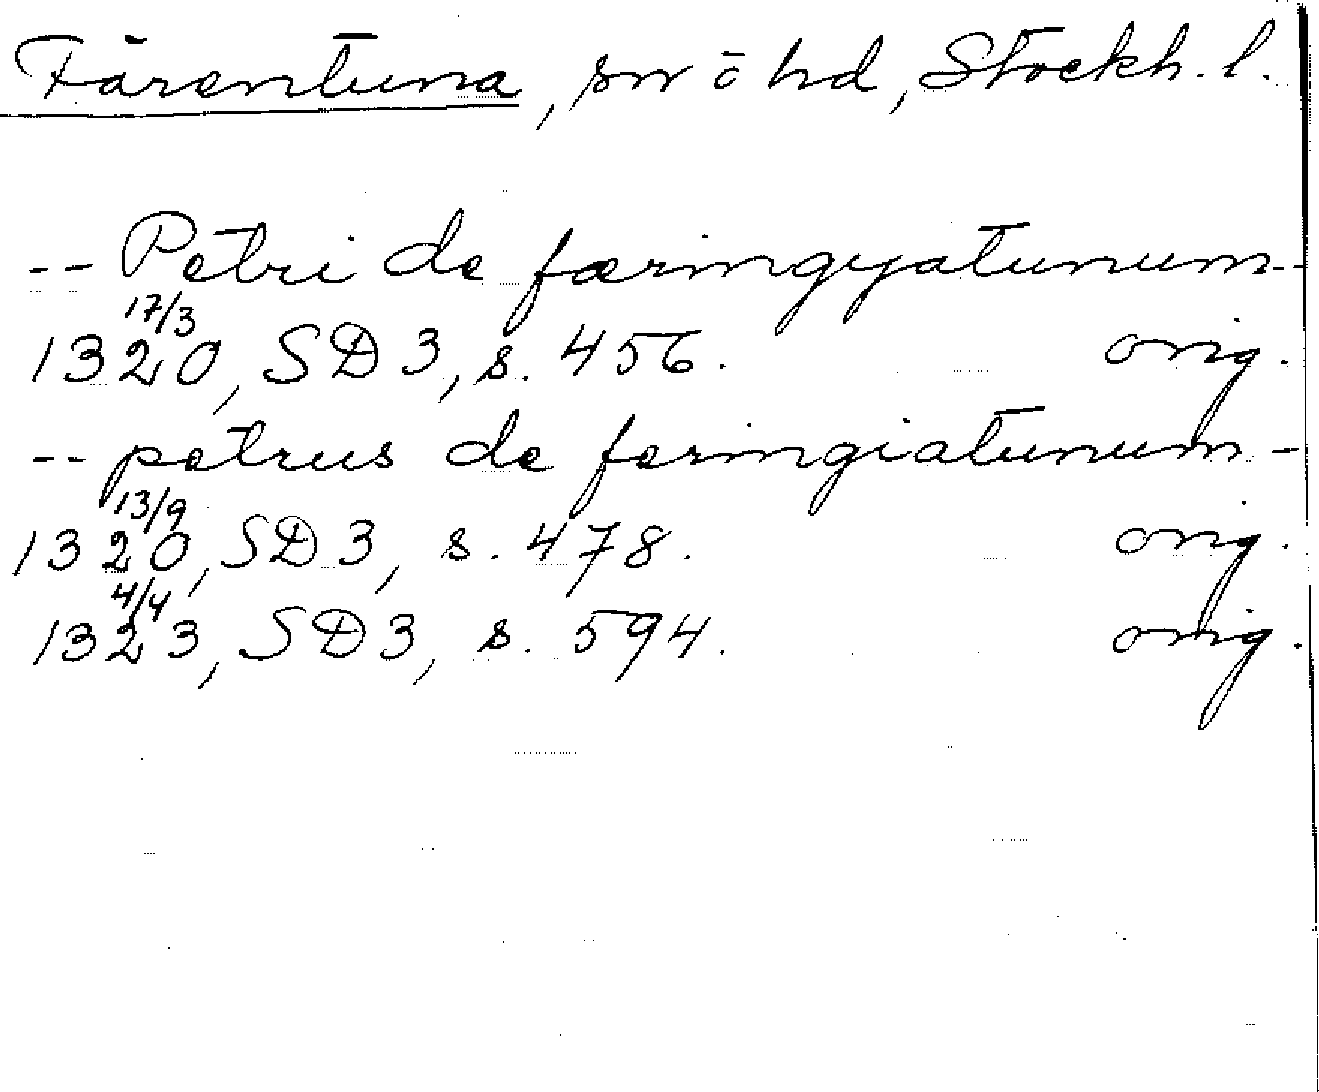 Färentuna, sn ō hd, Stockh. l.
-- Petri de færingyatunum --
17/3
1320, SD 3, s. 456. orig.
-- petrus de feringiatunum --
13/9
1320, SD 3, s. 478. orig.
4/4
1323, SD 3, s. 594. orig.